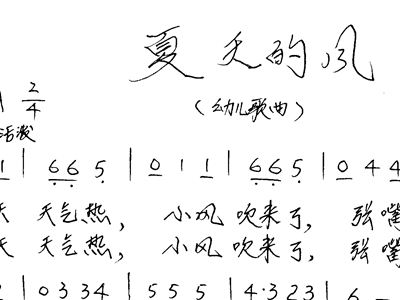 夏天的风
(幼儿歌曲)
2/4
活泼
1 | 6 6 5 | 0 1 1 | 6 6 5 | 0 4 4
天 天气热, 小风吹来了, 张嘴
天 天气热, 小风吹来了, 张嘴
| 0 3 3 4 | 5 5 5 | 4·3 2 3 | 6 -